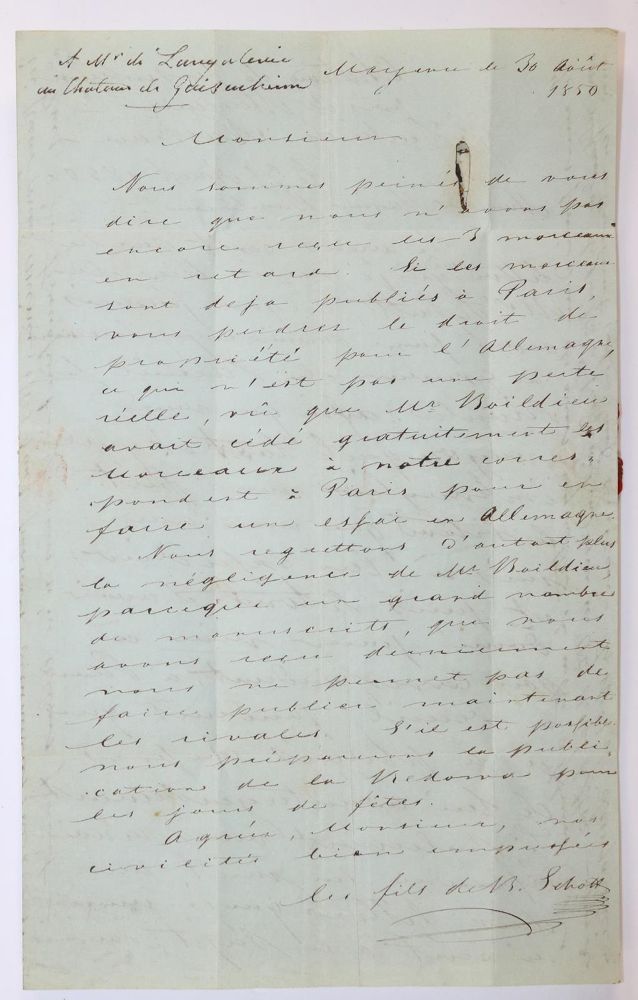 A Mr de
au Château de Geisenheim
Mayence le 30 Août
1850
Monsieur
Nous sommes peinés de vous
dire que nous n'avons pas
encore reçu les 3 morceaux
en retard. Si les morceaux
sont deja publiés à Paris,
vous perdrez le droit de
propriété pour l'Allemagne,
ce qui n'est pas une perte
réelle, vû que Mr Boïldieu
avait cédé gratuitement les
Morceaux à notre corres-
pondent à Paris pour en
faire un essai en Allemagne.
Nous regrettons d'autant plus
la négligence de Mr Boildieu,
parceque un grand nombre
de manuscrits, que nous
avons reçu dernièrement
nous ne permet pas de
faire publier maintenant
les rivales. S'il est possible
nous préparerons la publi-
cation de la Redowa pour
les jours de fêtes.
Agréez, Monsieur, nos
civilités bien empressées
les fils de B. Schott